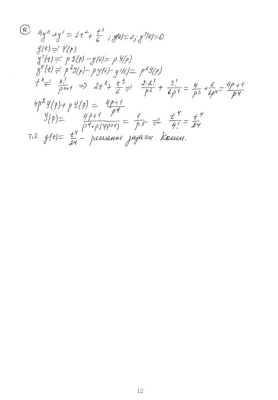 ⑤ 4y'' + y' = 2t² + t³/6 ; y(0)=0; y'(0)=0
y(t) ⇌ Y(p)
y'(t) ⇌ p Y(p) - y(0) = p Y(p)
y''(t) ⇌ p² Y(p) - p y(0) - y'(0) = p² Y(p)
tⁿ ⇌ n!/pⁿ⁺¹ ⇒ 2t² + t³/6 ⇌ 2·2!/p³ + 3!/6p⁴ = 4/p³ + 6/6p⁴ = 4p+1/p⁴
4p² Y(p) + p Y(p) = 4p+1/p⁴
Y(p) = 4p+1/p⁴·p(4p+1) = 1/p⁵ ⇌ t⁴/4! = t⁴/24
Т.о. y(t) = t⁴/24 - решение задачи Коши.
12